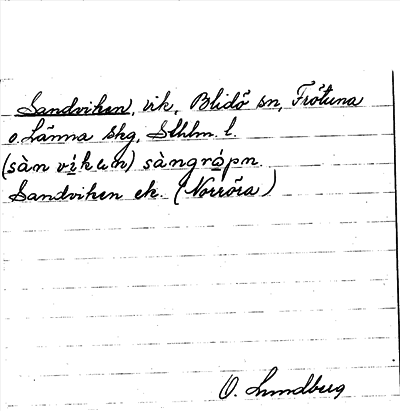 Sandviken, vik, Blidö sn, Frötuna
o. Länna skg, Sthlm. l.
(sàn vìkən) sàngrópn.
Sandviken ek. (Norröra)
O. Lundberg